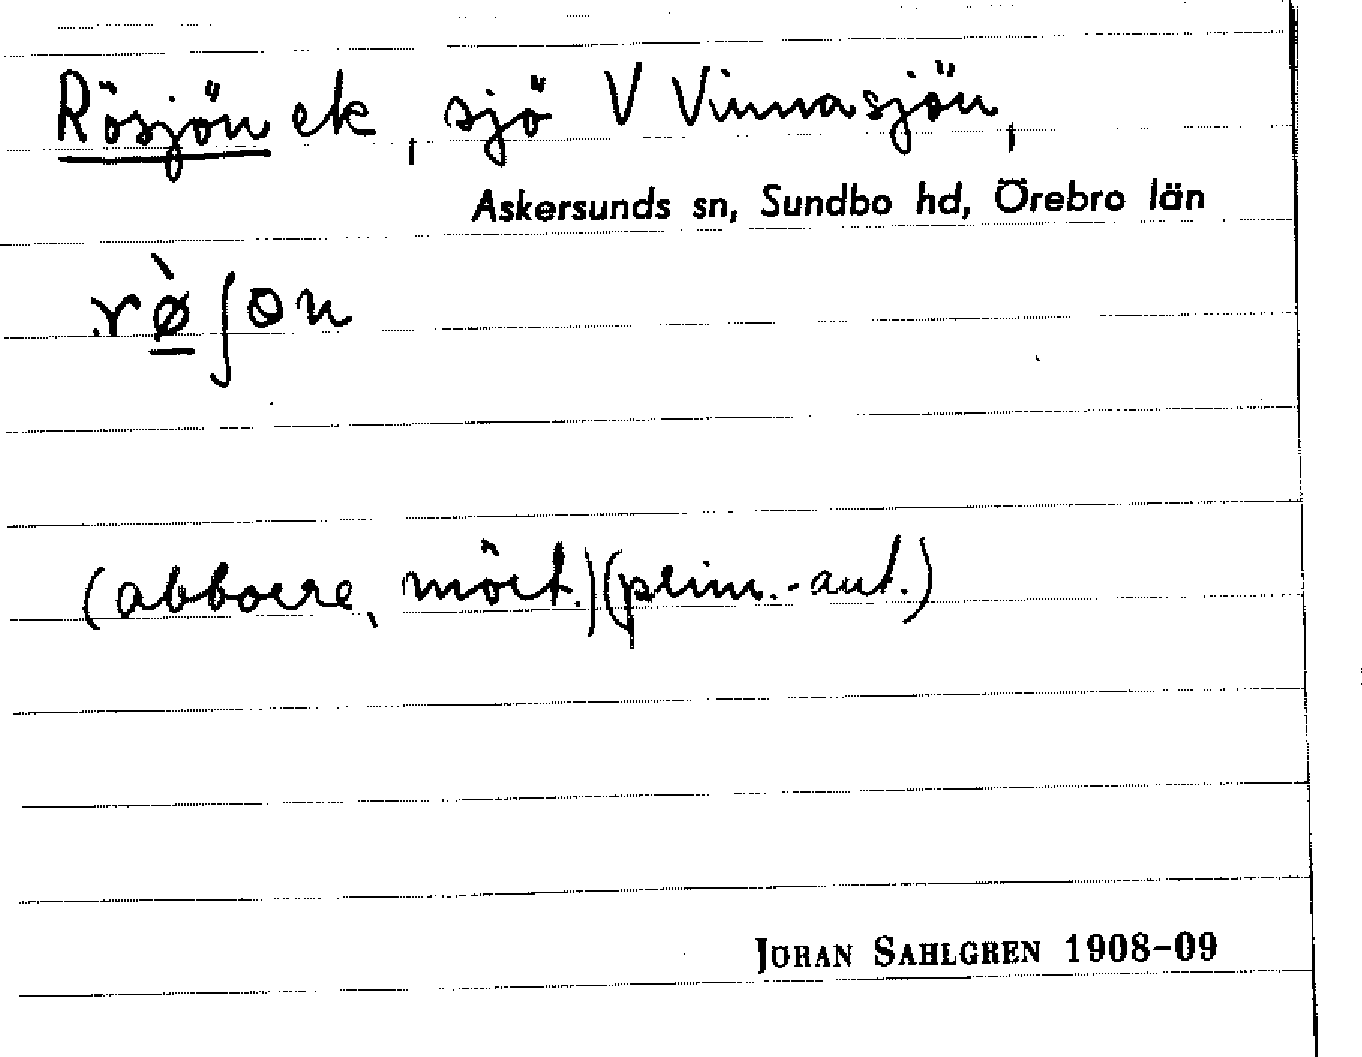 Rösjön ek, sjö V Vinnasjön,
Askersunds sn, Sundbo hd, Örebro län
rø̀ʃɵn
(abborre, mört.)(prim.-ant.)
JÖRAN SAHLGREN 1908–09